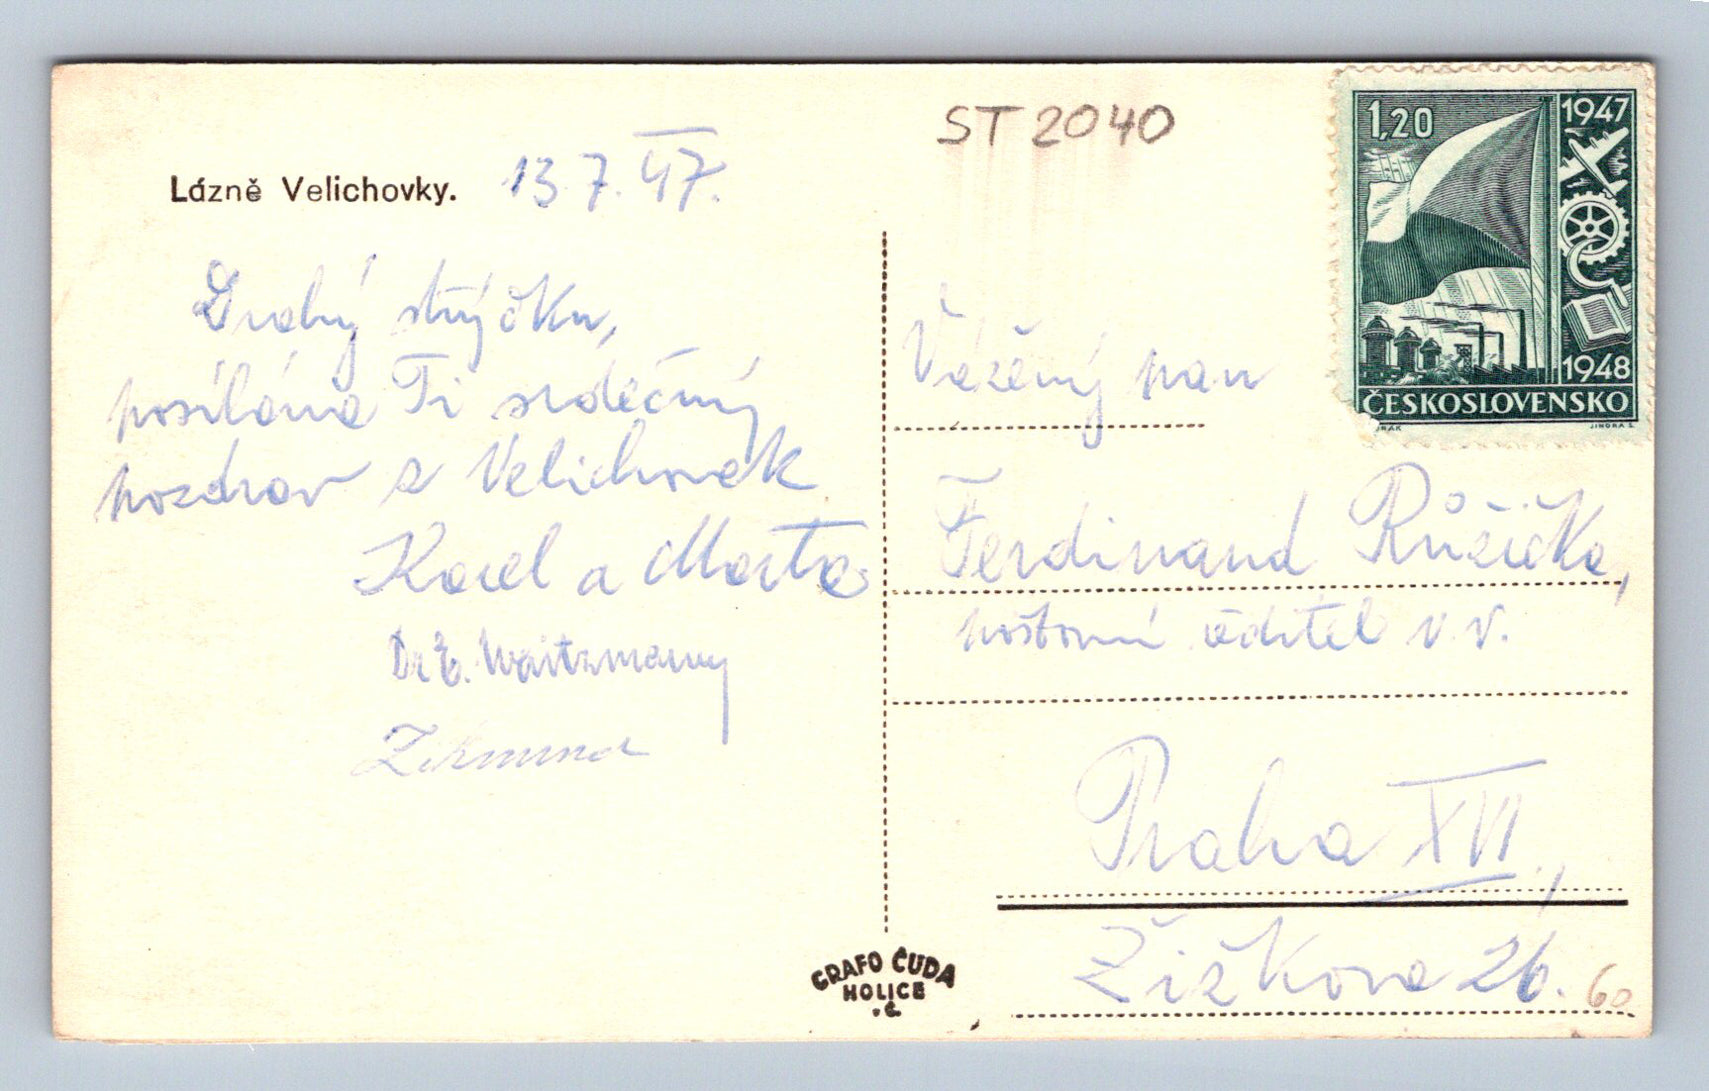 ST 2040
1,20
1947
1948
ČESKOSLOVENSKO
JINDRA S.
Lázně Velichovky. 13.7.47.
Drahý strýčku,
posíláme Ti srdečný
pozdrav z Velichovek
Karel a Marta
Dr E. Waitzmanny
Zikmund
Vážený pan
Ferdinand Růžička,
poštovní ředitel v.v.
Praha XVI.,
Žižkova 26.
60
GRAFO ČUDA
HOLICE